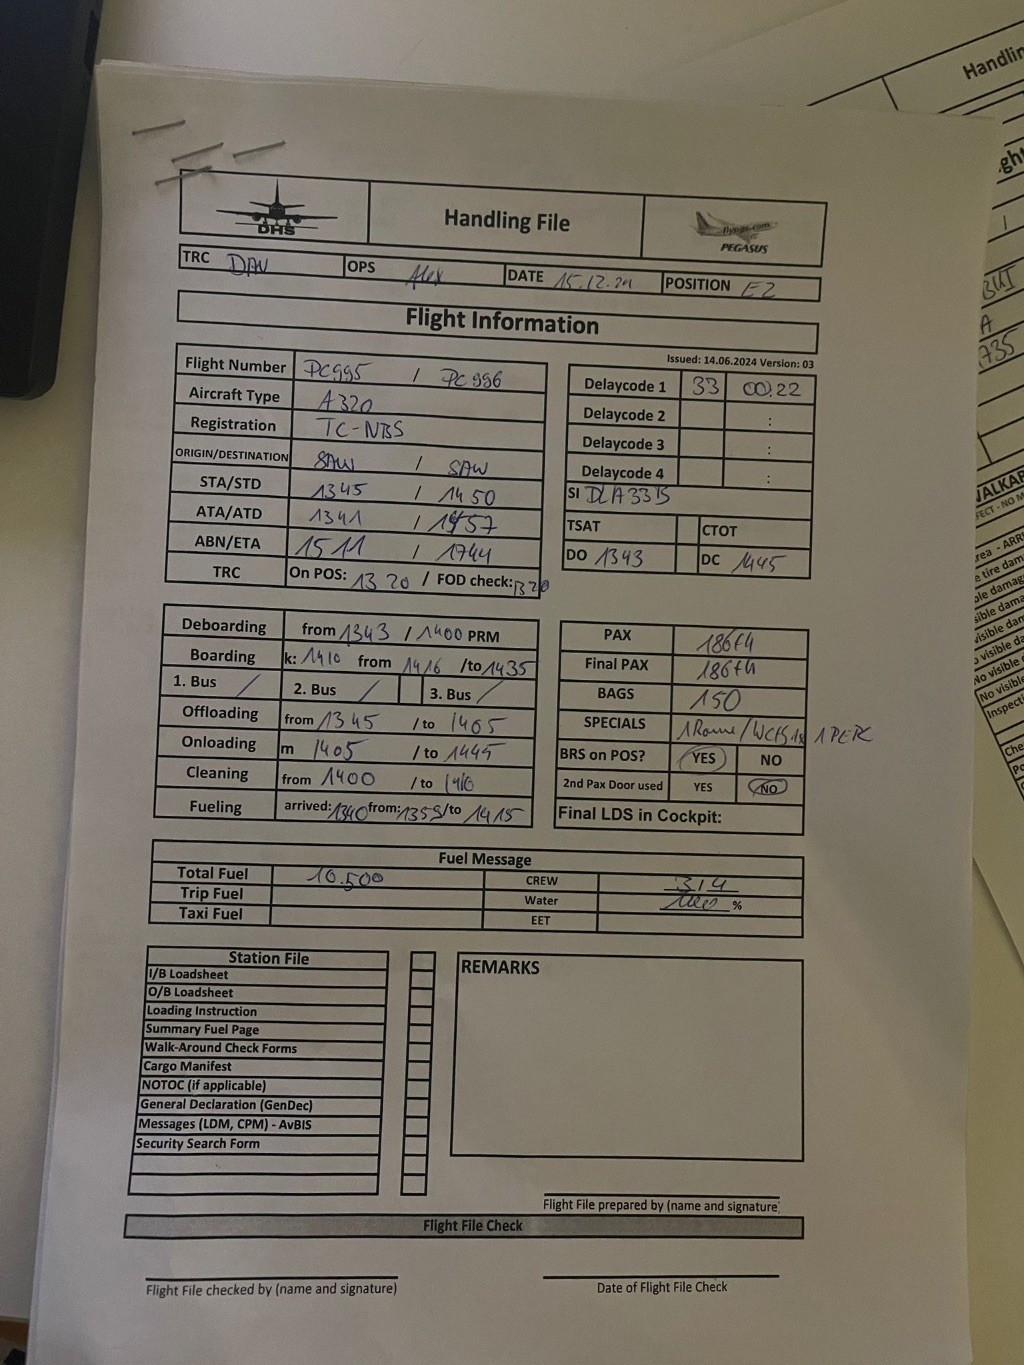 Handling
DHS
Handling File
flypgs.com
PEGASUS
TRC DAV OPS Alex DATE 15.12.24 POSITION E2
Flight Information
Issued: 14.06.2024 Version: 03
Flight Number PC995 / PC996
Aircraft Type A320
Registration TC-NBS
ORIGIN/DESTINATION SAW / SAW
STA/STD 1345 / 1450
ATA/ATD 1341 / 1457
ABN/ETA 1511 / 1744
TRC On POS: 1320 / FOD check: 1320
Delaycode 1 33 00:22
Delaycode 2 :
Delaycode 3 :
Delaycode 4 :
SI DLA33B
TSAT CTOT
DO 1343 DC 1445
Deboarding from 1343 / 1400 PRM
Boarding k: 1410 from 1416 /to 1435
1. Bus / 2. Bus / 3. Bus /
Offloading from 1345 / to 1405
Onloading m 1405 / to 1445
Cleaning from 1400 / to 1410
Fueling arrived: 1340 from: 1355 /to 1415
PAX 186+4
Final PAX 186+4
BAGS 150
SPECIALS 1 /WCHS 1x 1 PETC
BRS on POS? YES NO
2nd Pax Door used YES NO
Final LDS in Cockpit:
Fuel Message
Total Fuel 10.500 CREW 3/4
Trip Fuel Water 100 %
Taxi Fuel EET
Station File
I/B Loadsheet
O/B Loadsheet
Loading Instruction
Summary Fuel Page
Walk-Around Check Forms
Cargo Manifest
NOTOC (if applicable)
General Declaration (GenDec)
Messages (LDM, CPM) - AvBIS
Security Search Form
REMARKS
Flight File prepared by (name and signature)
Flight File Check
Flight File checked by (name and signature)
Date of Flight File Check